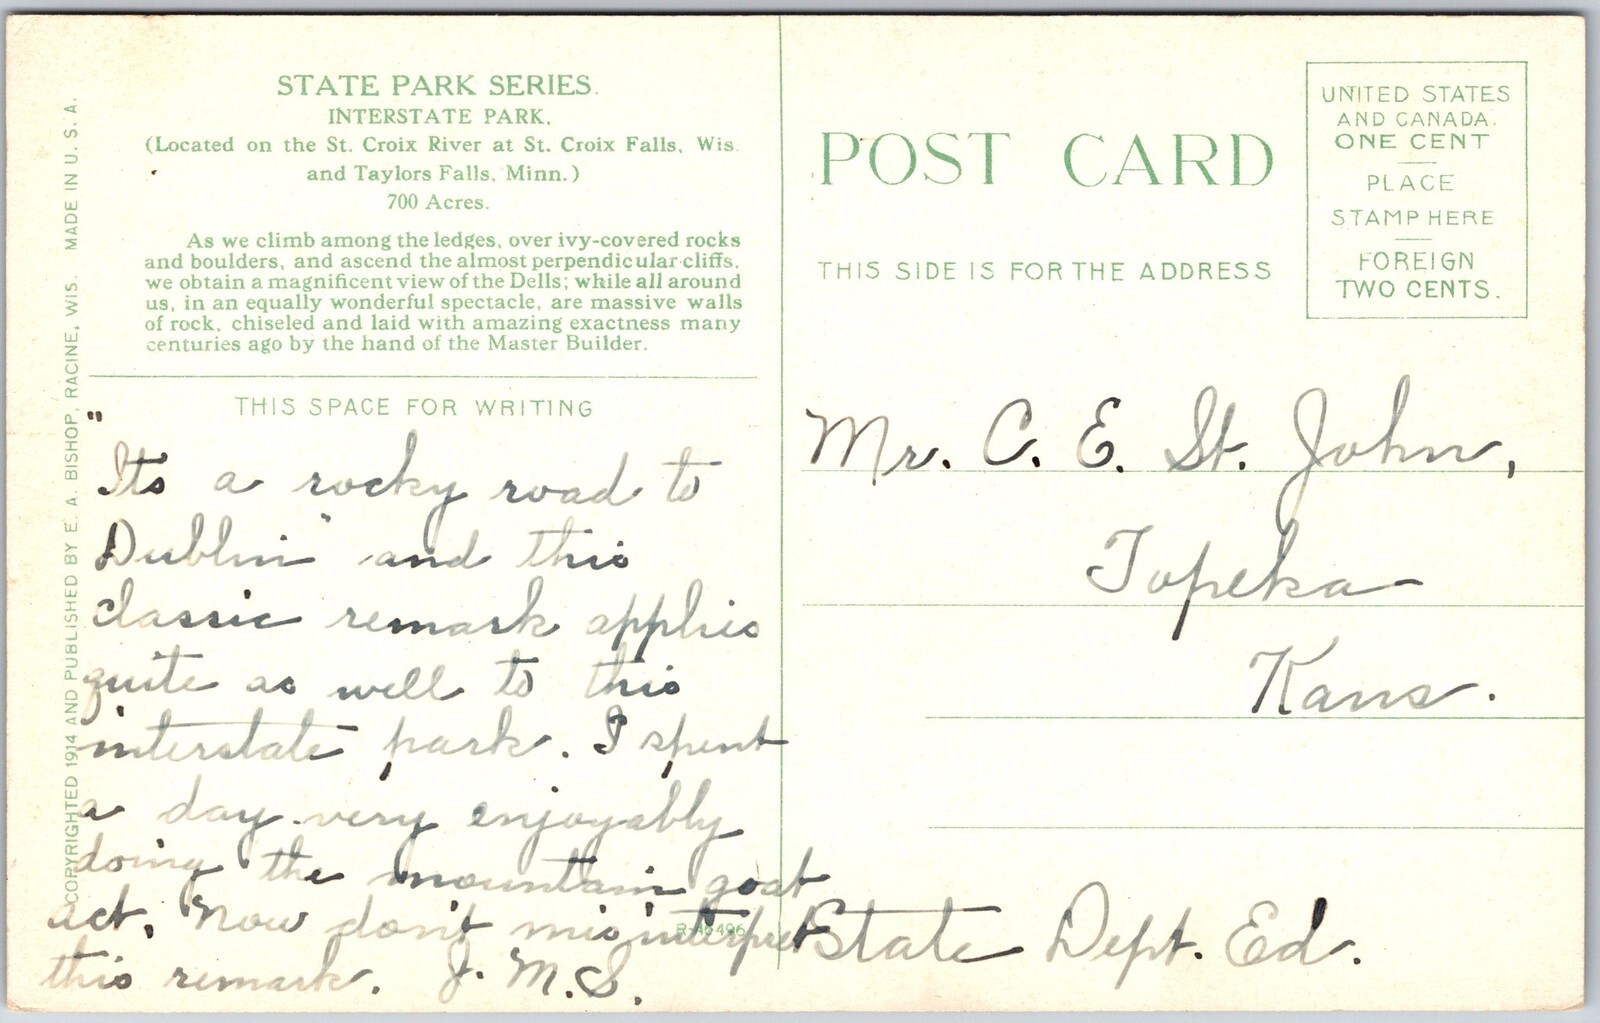 STATE PARK SERIES.
INTERSTATE PARK.
(Located on the St. Croix River at St. Croix Falls, Wis.
and Taylors Falls, Minn.)
700 Acres.
As we climb among the ledges, over ivy-covered rocks
and boulders, and ascend the almost perpendicular cliffs,
we obtain a magnificent view of the Dells; while all around
us, in an equally wonderful spectacle, are massive walls
of rock, chiseled and laid with amazing exactness many
centuries ago by the hand of the Master Builder.
THIS SPACE FOR WRITING
"Its a rocky road to
Dublin" and this
classic remark applies
quite as well to this
interstate park. I spent
a day very enjoyably
doing the mountain goat
act. Now don't misinterpret
this remark. J. M. S.
COPYRIGHTED 1914 AND PUBLISHED BY E. A. BISHOP, RACINE, WIS. MADE IN U. S. A.
POST CARD
THIS SIDE IS FOR THE ADDRESS
UNITED STATES
AND CANADA.
ONE CENT
PLACE
STAMP HERE
FOREIGN
TWO CENTS.
Mr. C. E. St. John,
Topeka
Kans.
State Dept. Ed.